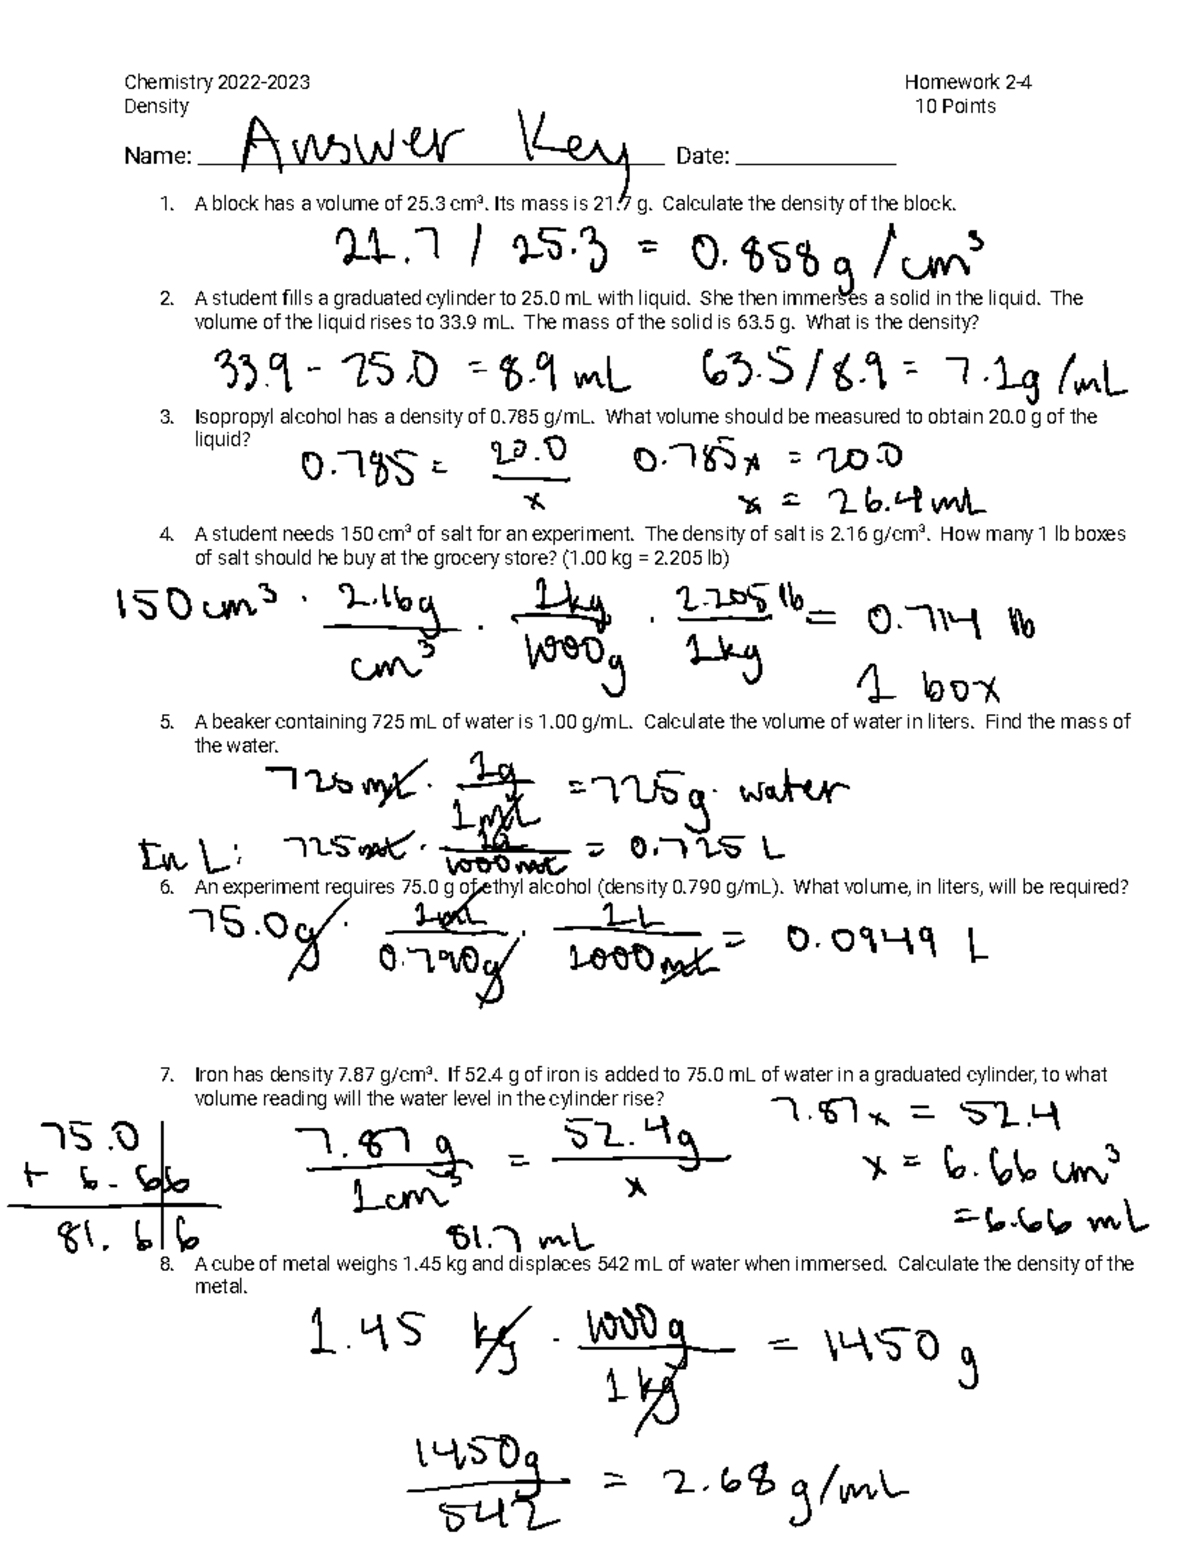 Chemistry 2022-2023 Homework 2-4
Density 10 Points
Name: Answer Key Date:
1. A block has a volume of 25.3 cm³. Its mass is 21.7 g. Calculate the density of the block.
21.7 / 25.3 = 0.858 g/cm³
2. A student fills a graduated cylinder to 25.0 mL with liquid. She then immerses a solid in the liquid. The
volume of the liquid rises to 33.9 mL. The mass of the solid is 63.5 g. What is the density?
33.9 - 25.0 = 8.9 mL 63.5 / 8.9 = 7.1 g/mL
3. Isopropyl alcohol has a density of 0.785 g/mL. What volume should be measured to obtain 20.0 g of the
liquid?
0.785 = 20.0 / x 0.785x = 20.0
x = 26.4 mL
4. A student needs 150 cm³ of salt for an experiment. The density of salt is 2.16 g/cm³. How many 1 lb boxes
of salt should he buy at the grocery store? (1.00 kg = 2.205 lb)
150 cm³ · 2.16g / cm³ · 1kg / 1000g · 2.205 lb / 1kg = 0.714 lb
1 box
5. A beaker containing 725 mL of water is 1.00 g/mL. Calculate the volume of water in liters. Find the mass of
the water.
725 mL · 1g / 1mL = 725g water
In L: 725 mL · 1L / 1000 mL = 0.725 L
6. An experiment requires 75.0 g of ethyl alcohol (density 0.790 g/mL). What volume, in liters, will be required?
75.0g · 1mL / 0.790g · 1L / 1000mL = 0.0949 L
7. Iron has density 7.87 g/cm³. If 52.4 g of iron is added to 75.0 mL of water in a graduated cylinder, to what
volume reading will the water level in the cylinder rise?
7.87x = 52.4
75.0
+ 6.66
81.66
7.87 g / 1cm³ = 52.4g / x
x = 6.66 cm³
= 6.66 mL
81.7 mL
8. A cube of metal weighs 1.45 kg and displaces 542 mL of water when immersed. Calculate the density of the
metal.
1.45 kg · 1000g / 1kg = 1450 g
1450g / 542 = 2.68 g/mL